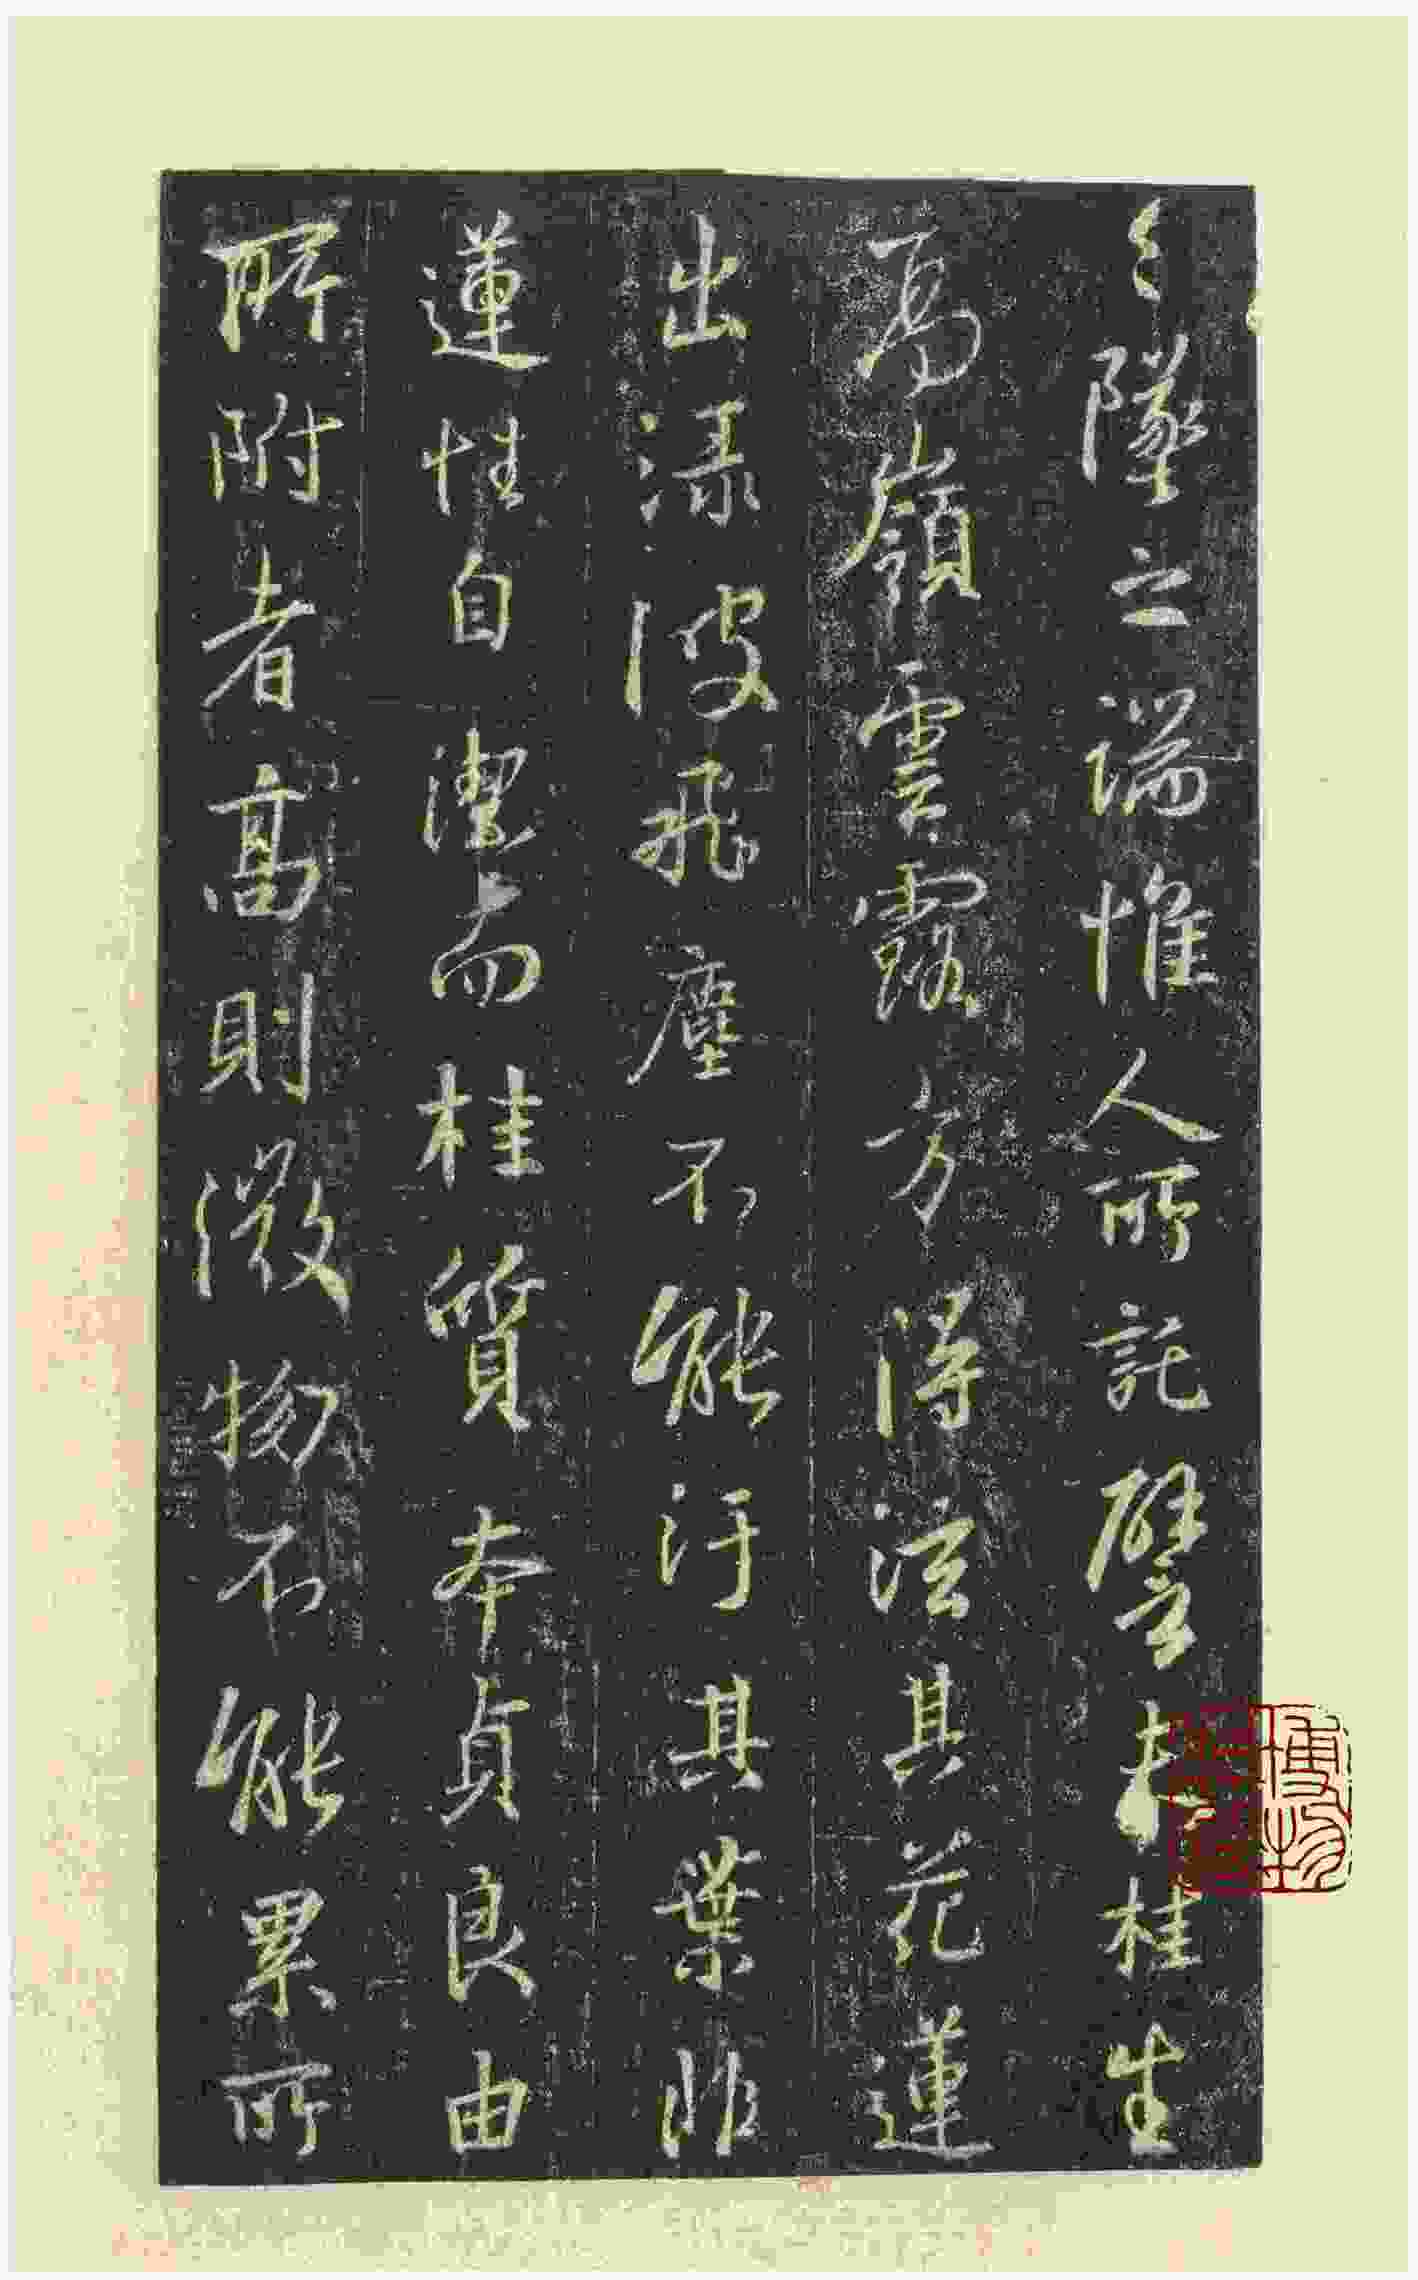 々墜之端惟人所託譬夫桂生
高嶺雲露方得泫其花蓮
出淥波飛塵不能汙其葉非
蓮性自潔而桂質本貞良由
所附者高則微物不能累所
博物